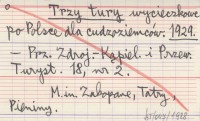 Trzy tury wycieczkowe
po Polsce dla cudzoziemców. 1929.
– Prz. Zdroj.-Kąpiel. i Przew.
Turyst. 18, nr 2.
M.in. Zakopane, Tatry,
Pieniny.